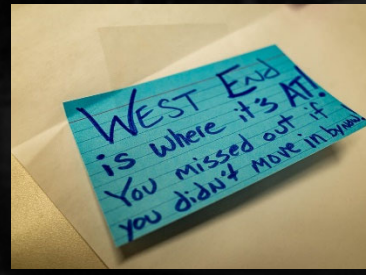 WEST End
is where it's AT!
You missed out if
you didn't move in by now!